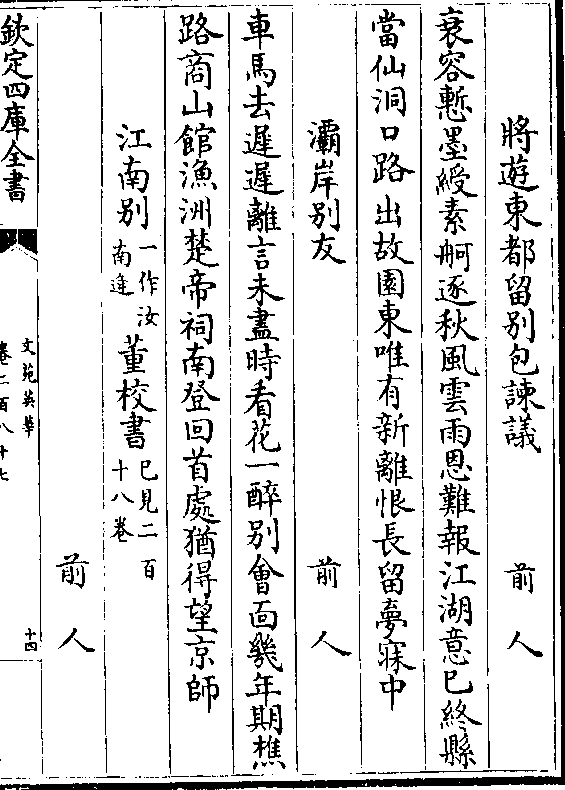 將遊東都留別包諫議　前人
衰容慙墨綬素舸逐秋風雲雨恩難報江湖意已終縣
當仙洞口路出故園東唯有新離恨長留夢寐中
灞岸別友　前人
車馬去遲遲離言未盡時看花一醉別會面幾年期樵
路商山館漁洲楚帝祠南登回首處猶得望京師
江南別一作汝南逢董校書已見二百十八卷
前人
欽定四庫全書
文苑英華
卷二百八十七
十四